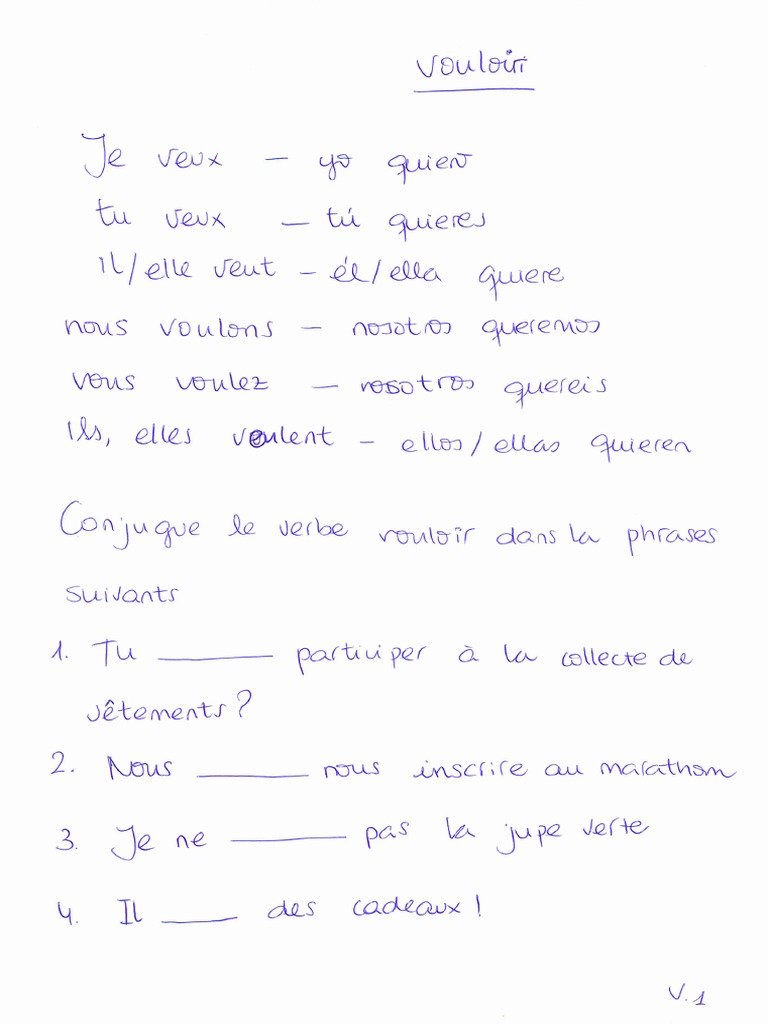 vouloir
Je veux – yo quiero
tu veux – tú quieres
il/elle veut – él/ella quiere
nous voulons – nosotros queremos
vous voulez – vosotros quereis
Ils, elles veulent – ellos/ellas quieren
Conjugue le verbe vouloir dans la phrases
suivants
1. Tu ______ participer à la collecte de
vêtements?
2. Nous ______ nous inscrire au marathon
3. Je ne ______ pas la jupe verte
4. Il ____ des cadeaux!
V.1